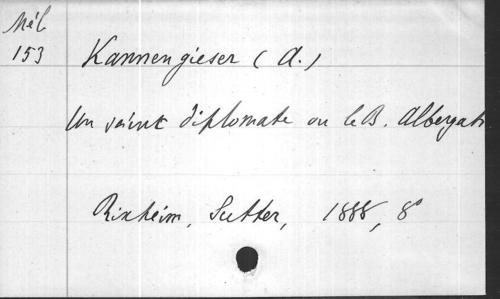 Mél
153
Kannengieser (A.)
Un saint diplomate ou le B. Albergati
Rixheim, Sutter, 1888, 8°